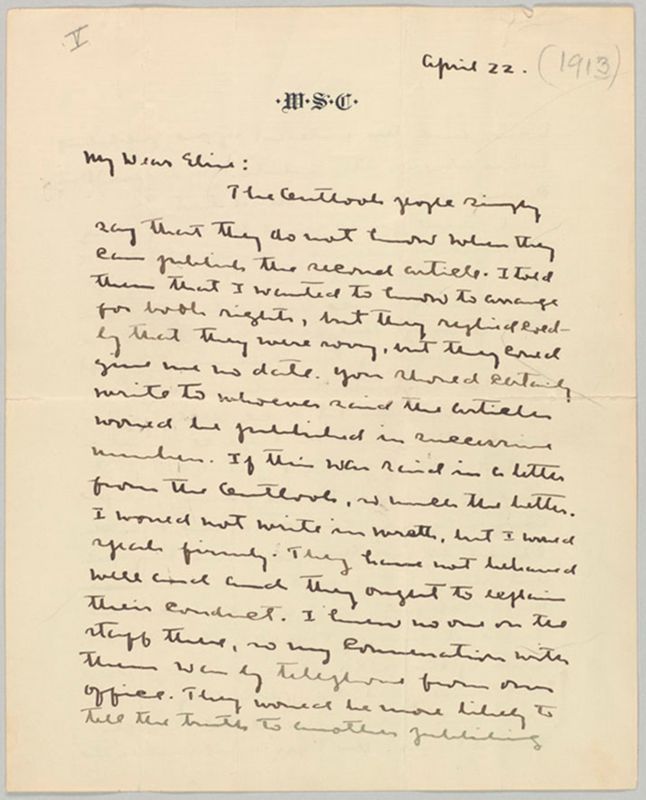 V
April 22. (1913)
·W·S·C·
My Dear Elsie:
The Outlook people simply
say that they do not know when they
can publish the second article. I told
them that I wanted to know to arrange
for book rights, but they replied cold-
ly that they were sorry, but they could
give me no date. You should certainly
write to whoever said the articles
would be published in successive
numbers. If this was said in a letter
from the Outlook, so much the better.
I would not write in wrath, but I would
speak firmly. They have not behaved
well and and they ought to explain
their conduct. I knew no one on the
staff there, so my conversation with
them was by telephone from our
office. They would be more likely to
tell the truth to another publishing